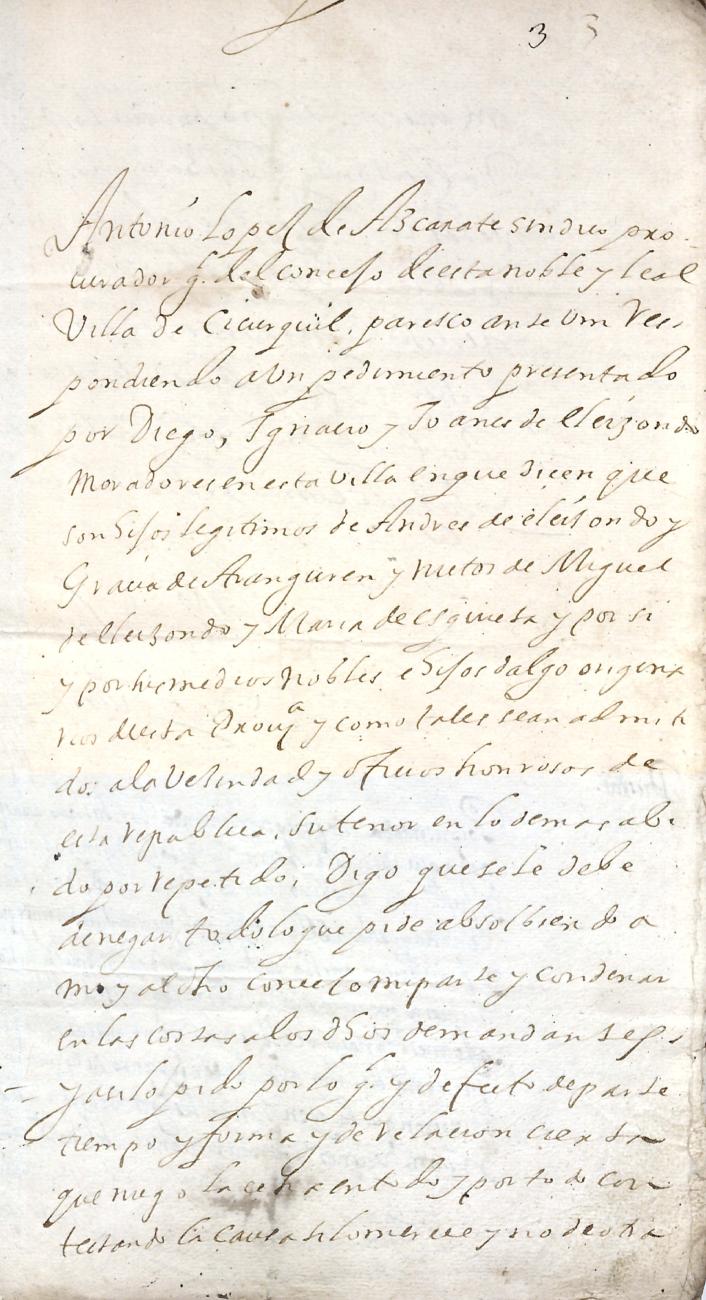 3
Antonio Lopez de Ascarate sindico pro
curador g.l del concejo de esta noble y leal
Villa de Cicurquil, paresco ante Vm Res
pondiendo a Un pedimiento presentado
por Diego, Ignacio y Joanes de Eleizondo
moradores en esta villa en que dicen que
son Hijos legitimos de Andres de eleisondo y
Gracia de Aranguren y nietos de Miguel
de Eleizondo y Maria de esquieta y por si
y por sus medios nobles e Hijos dalgo origina
rios de esta Prov.a y como tales sean admiti
dos a la Vesindad y oficios honrosos de
esta republica, su tenor en lo demas abi
do por repetido; Digo que se le debe
denegar todo lo que pide absolbiendo a
mi y al dho concejo mi parte y condenar
en las costas a los dhos demandantes
y asi lo pido por lo g.l y defecto de parte
tiempo y forma y de relacion cierta
que niego la echa en todo y por todo con
testando la causa si lo merece y no de otra